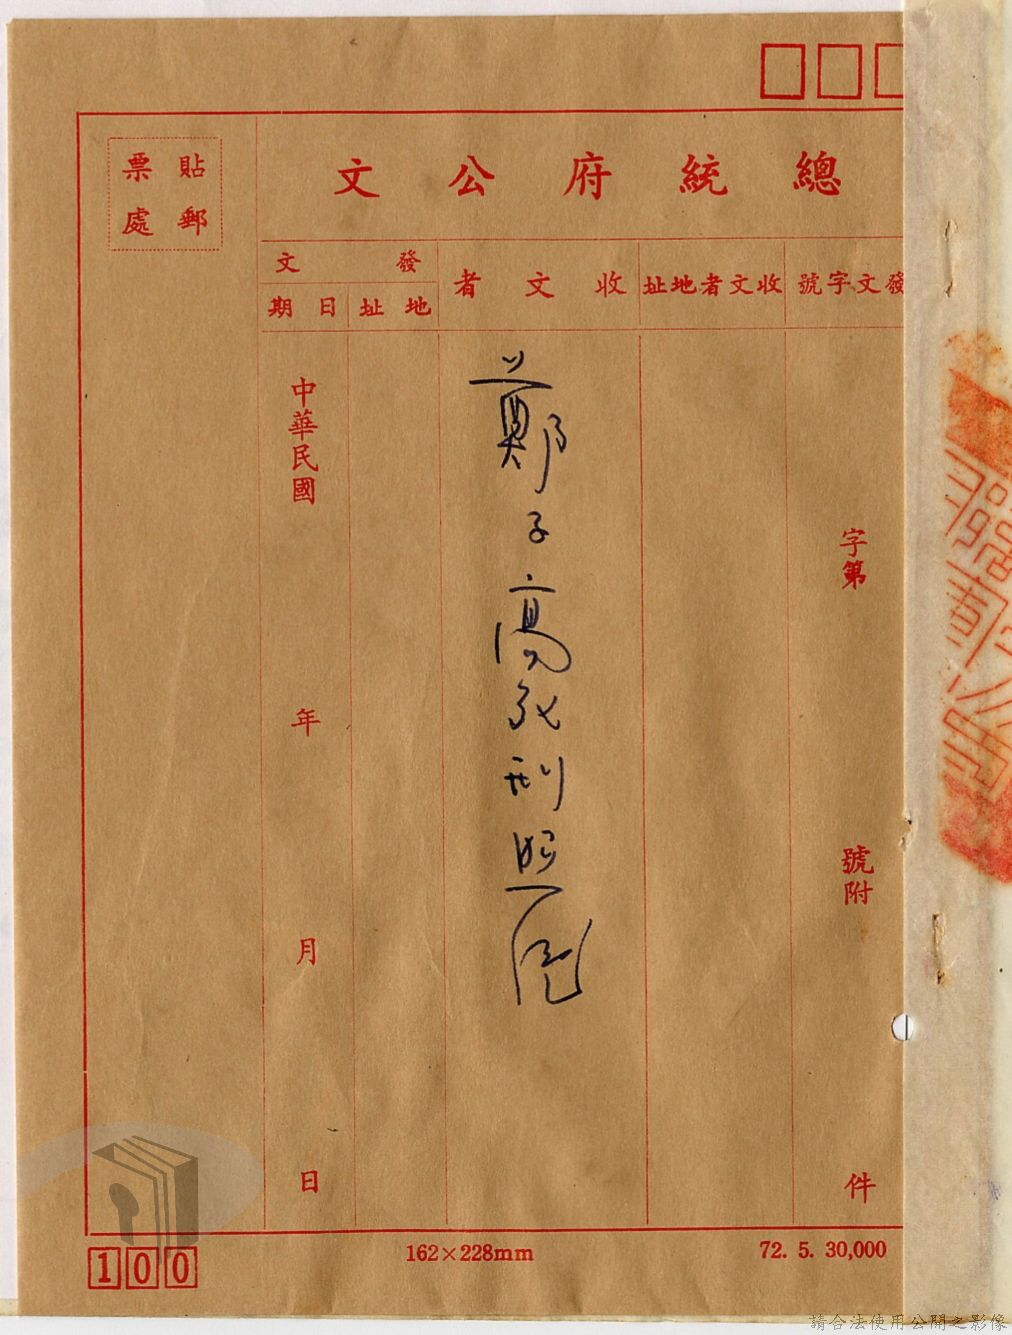 總統府公文
貼郵
票處
發文字號
收文者地址
收文者
發文
地址
日期
字第
號附
件
鄭子高死刑照片
中華民國
年
月
日
100
162×228mm
72. 5. 30,000
請合法使用公開之影像